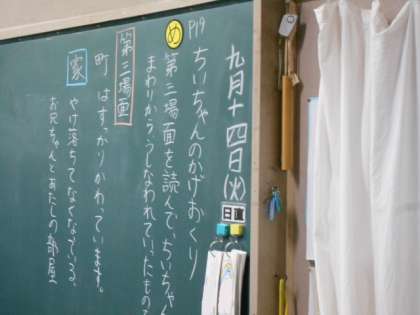 九月十四日(火)
日直
P19
ちいちゃんのかげおくり
め
第三場面を読んで、ちいちゃん
まわりからうしなわれていったもの
第三場面
町はすっかりかわっています。
家
やけ落ちてなくなっている。
お兄ちゃんとあたしの部屋